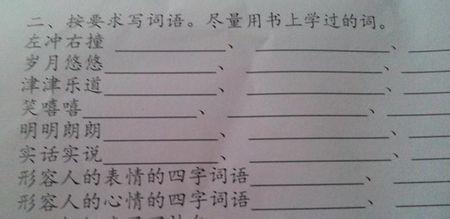 二、按要求写词语。尽量用书上学过的词。
左冲右撞 ________、________、
岁月悠悠 ________、________、
津津乐道________、________、
笑嘻嘻________、________、
明明朗朗________、________、
实话实说________、________、
形容人的表情的四字词语________、
形容人的心情的四字词语________、